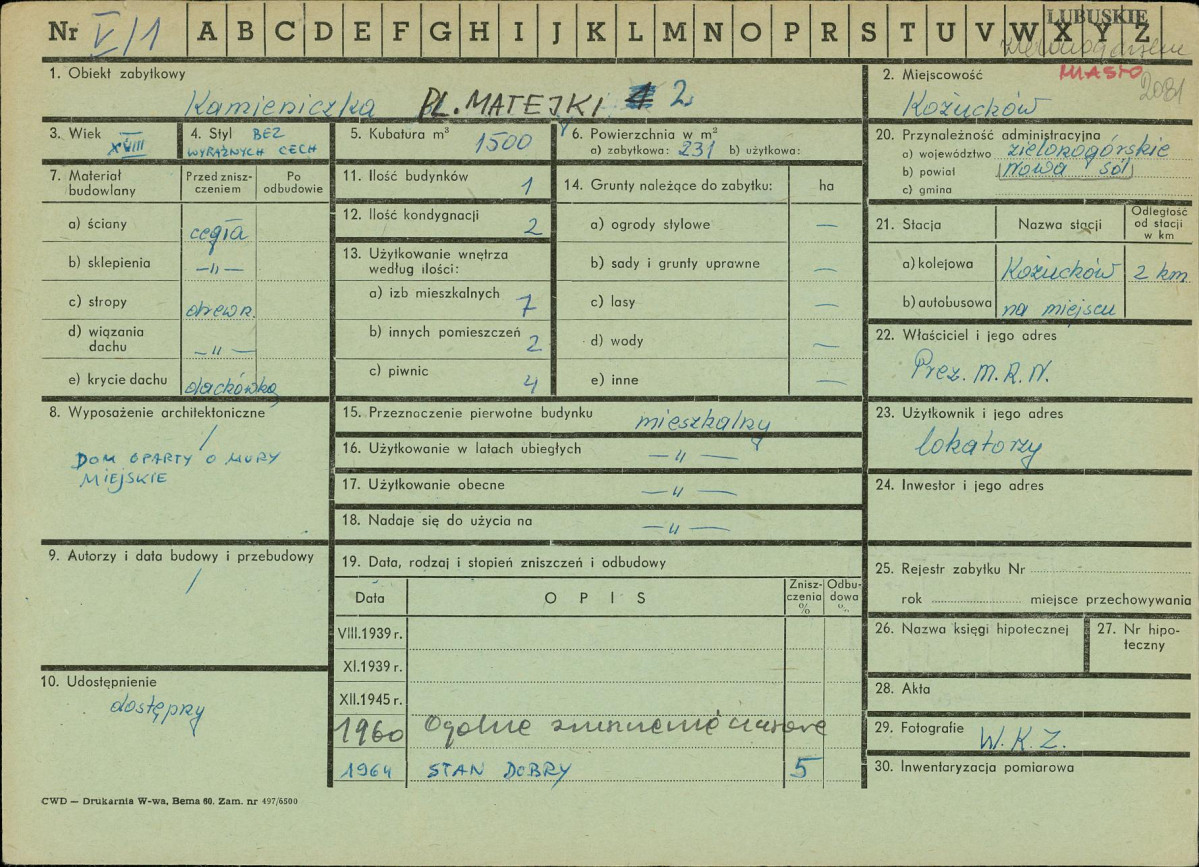 Nr V/1 A B C D E F G H I J K L M N O P R S T U V W X Y Z
LUBUSKIE
MIASTO
2081
1. Obiekt zabytkowy
Kamieniczka PL. MATEJKI 2
2. Miejscowość
Kożuchów
3. Wiek
XVIII
4. Styl BEZ
WYRAŹNYCH CECH
5. Kubatura m³ 1500
6. Powierzchnia w m²
a) zabytkowa: 231 b) użytkowa:
7. Materiał budowlany
Przed znisz-
czeniem
Po
odbudowie
a) ściany cegła
b) sklepienia —„—
c) stropy drewn.
d) wiązania
dachu —„—
e) krycie dachu dachówka
8. Wyposażenie architektoniczne
/
DOM OPARTY O MURY
MIEJSKIE
9. Autorzy i data budowy i przebudowy
/
10. Udostępnienie
dostępny
11. Ilość budynków 1
12. Ilość kondygnacji 2
13. Użytkowanie wnętrza
według ilości:
a) izb mieszkalnych 7
b) innych pomieszczeń 2
c) piwnic 4
14. Grunty należące do zabytku: ha
a) ogrody stylowe —
b) sady i grunty uprawne —
c) lasy —
d) wody —
e) inne —
15. Przeznaczenie pierwotne budynku mieszkalny
16. Użytkowanie w latach ubiegłych —„—
17. Użytkowanie obecne —„—
18. Nadaje się do użycia na —„—
19. Data, rodzaj i stopień zniszczeń i odbudowy
Data OPIS Znisz-
czenia
% Odbu-
dowa
%
VIII.1939 r.
XI.1939 r.
XII.1945 r.
1960 Ogólne
1964 STAN DOBRY 5
20. Przynależność administracyjna
a) województwo zielonogórskie
b) powiat Nowa Sól
c) gmina
21. Stacja Nazwa stacji Odległość
od stacji
w km
a) kolejowa Kożuchów 2 km
b) autobusowa na miejscu
22. Właściciel i jego adres
Prez. M.R.N.
23. Użytkownik i jego adres
lokatorzy
24. Inwestor i jego adres
25. Rejestr zabytku Nr
rok miejsce przechowywania
26. Nazwa księgi hipotecznej
27. Nr hipo-
teczny
28. Akta
29. Fotografie W.K.Z.
30. Inwentaryzacja pomiarowa
CWD — Drukarnia W-wa, Bema 60. Zam. nr 497/6500